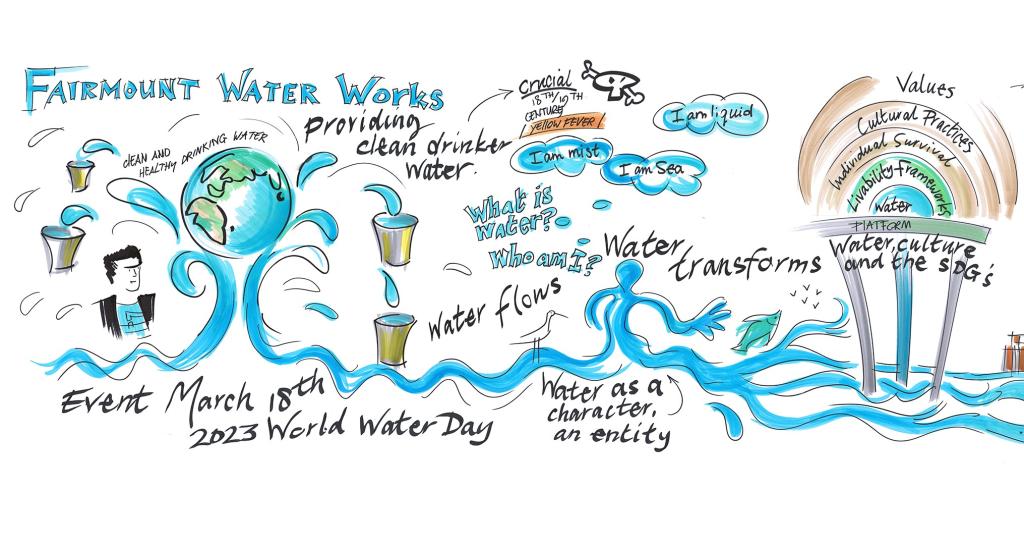 FAIRMOUNT WATER WORKS
providing
clean drinker
water.
CLEAN AND
HEALTHY DRINKING WATER
Crucial
18TH/19TH
CENTURY
YELLOW FEVER!
I am liquid
I am mist
I am Sea
What is
water?
Who am I?
Water flows
Water
transforms
Event March 18th
2023 World Water Day
Water as a
character,
an entity
Values
Cultural Practices
Individual Survival
Livability Frameworks
water
PLATFORM
Water, culture
and the SDG's